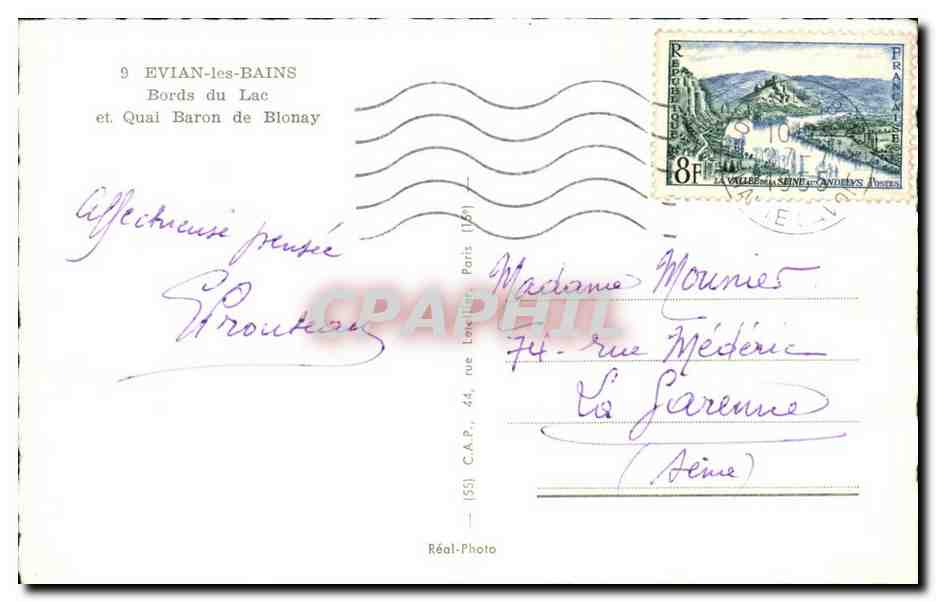 9 EVIAN-les-BAINS
Bords du Lac
et Quai Baron de Blonay
REPUBLIQUE FRANÇAISE
8F
LA VALLÉE DE LA SEINE AUX ANDELYS POSTES
1955
Affectueuse pensée
Madame Mounier
74 - rue Médéric
La Garenne
(Seine)
(55) C.A.P., 44, rue Letellier, Paris (15e)
CPAPHIL
Réal-Photo